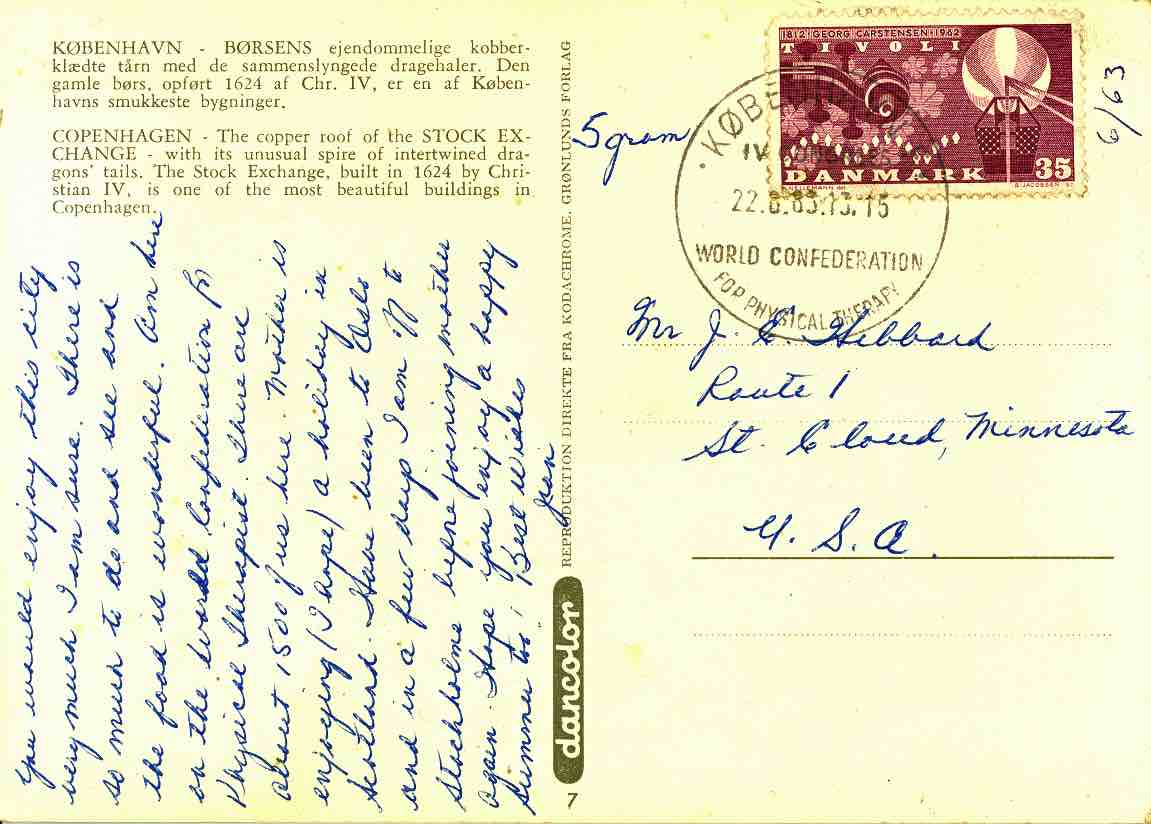 KØBENHAVN - BØRSENS ejendommelige kobber-
klædte tårn med de sammenslyngede dragehaler. Den
gamle børs, opført 1624 af Chr. IV, er en af Køben-
havns smukkeste bygninger.
COPENHAGEN - The copper roof of the STOCK EX-
CHANGE - with its unusual spire of intertwined dra-
gons' tails. The Stock Exchange, built in 1624 by Chri-
stian IV, is one of the most beautiful buildings in
Copenhagen.
You would enjoy this city
very much I am sure. There is
so much to do and see and
the food is wonderful. Am here
on the World Confederation for
Physical Therapist. There are
about 1500 of us here. Mother is
enjoying (I hope) a holiday in
Scotland. Have been to Oslo
and in a few days I am off to
Stockholm before joining mother
again. Hope you enjoy a happy
summer too. Best Wishes
Jean
REPRODUKTION DIREKTE FRA KODACHROME. GRØNLUNDS FORLAG
dancolor
7
5 gram
1812 · GEORG CARSTENSEN · 1962
TIVOLI
DANMARK 35
6/63
KØBENHAVN
IV
22.6.63.13.15
WORLD CONFEDERATION
FOR PHYSICAL THERAPY
Mr J. C. Hibbard
Route 1
St. Cloud, Minnesota
U. S. A.